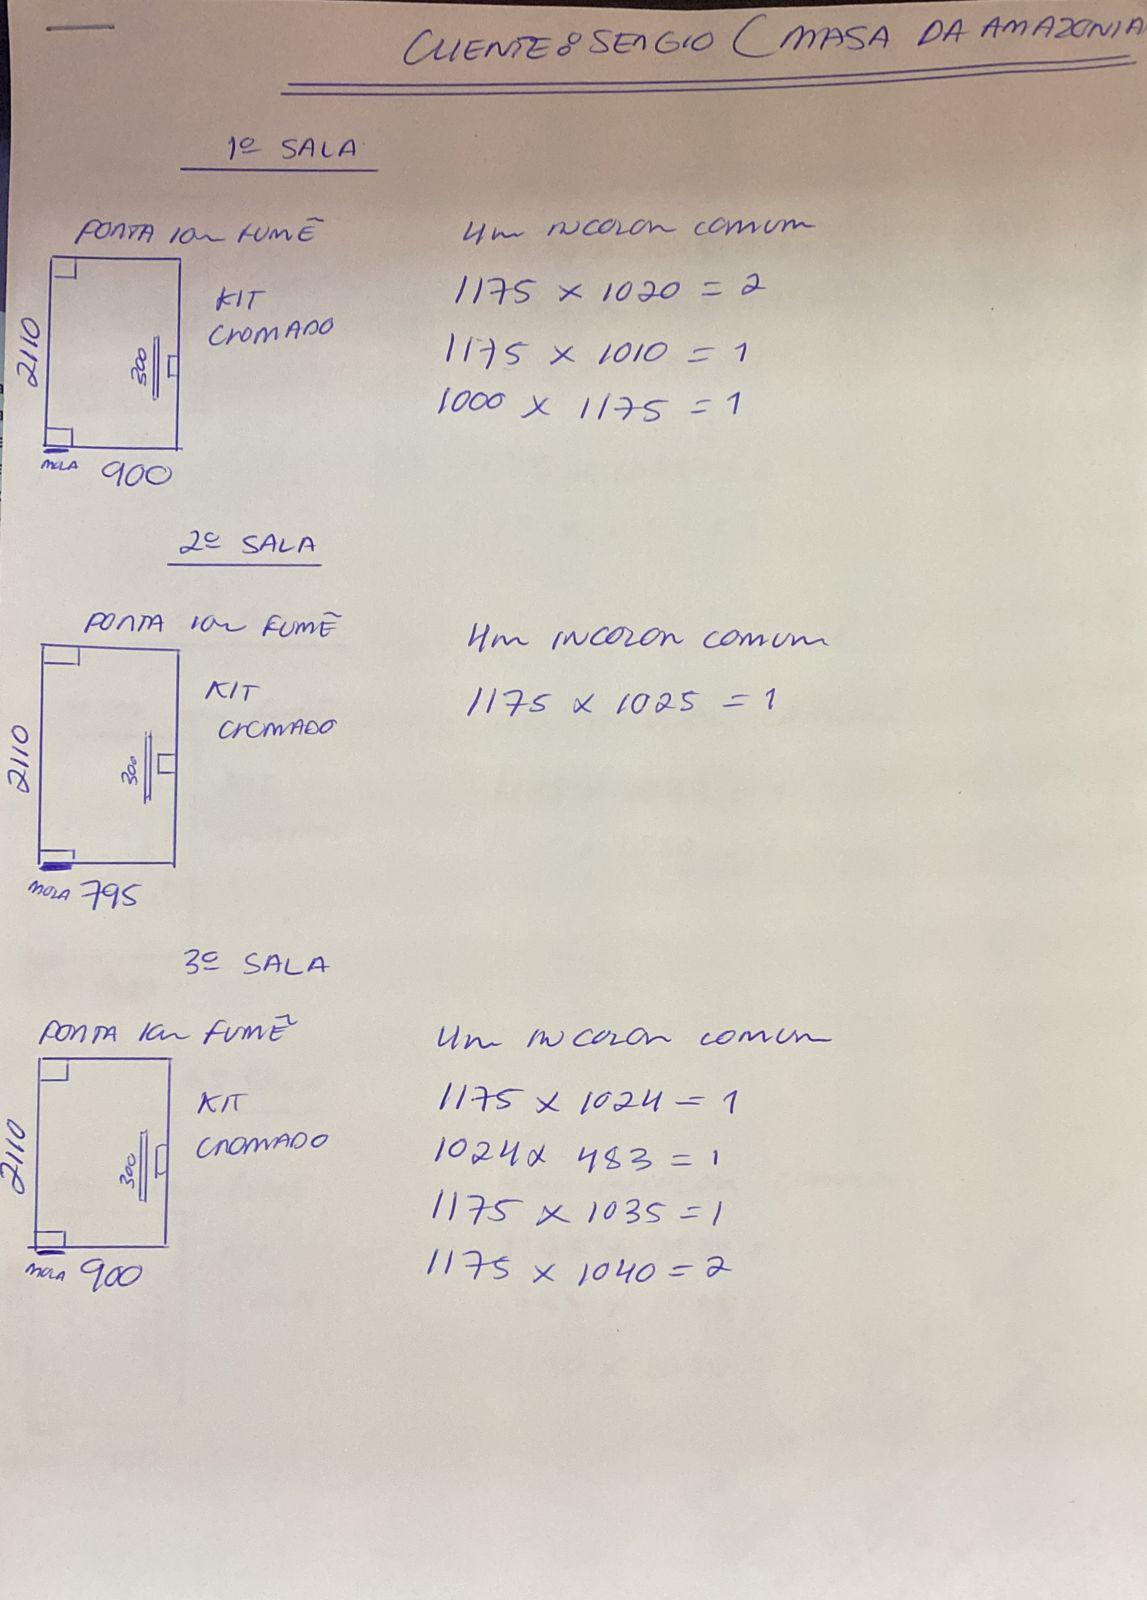 CLIENTE: SERGIO ( MASA DA AMAZONIA
1º SALA
PORTA 10m FUMÊ
4m INCOLOR COMUM
KIT
CROMADO
1175 x 1020 = 2
1175 x 1010 = 1
1000 x 1175 = 1
2110
300
MOLA 900
2º SALA
PORTA 10m FUMÊ
4m INCOLOR COMUM
KIT
CROMADO
1175 x 1025 = 1
2110
300
MOLA 795
3º SALA
PORTA 10m FUMÊ
4m INCOLOR COMUM
KIT
CROMADO
1175 x 1024 = 1
1024 x 483 = 1
1175 x 1035 = 1
1175 x 1040 = 2
2110
300
MOLA 900